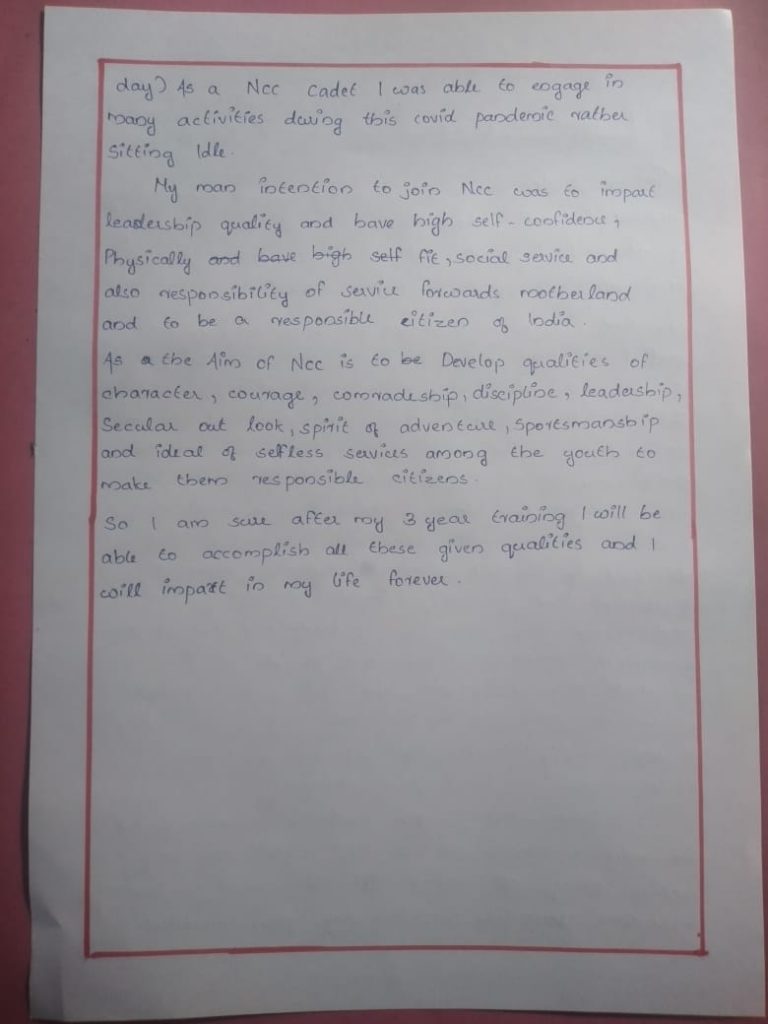 day) As a Ncc cadet I was able to engage in
many activities during this covid pandemic rather
Sitting Idle.
My man intention to join Ncc was to impart
leadership quality and have high self-confidence,
Physically and have high self fit, social service and
also responsibility of service forwards motherland
and to be a responsible citizen of India.
As a the Aim of Ncc is to be Develop qualities of
character, courage, comradeship, discipline, leadership,
Secular out look, spirit of adventure, Sportsmanship
and ideal of selfless services among the youth to
make them responsible citizens.
So I am sure after my 3 year training I will be
able to accomplish all these given qualities and I
will impart in my life forever.